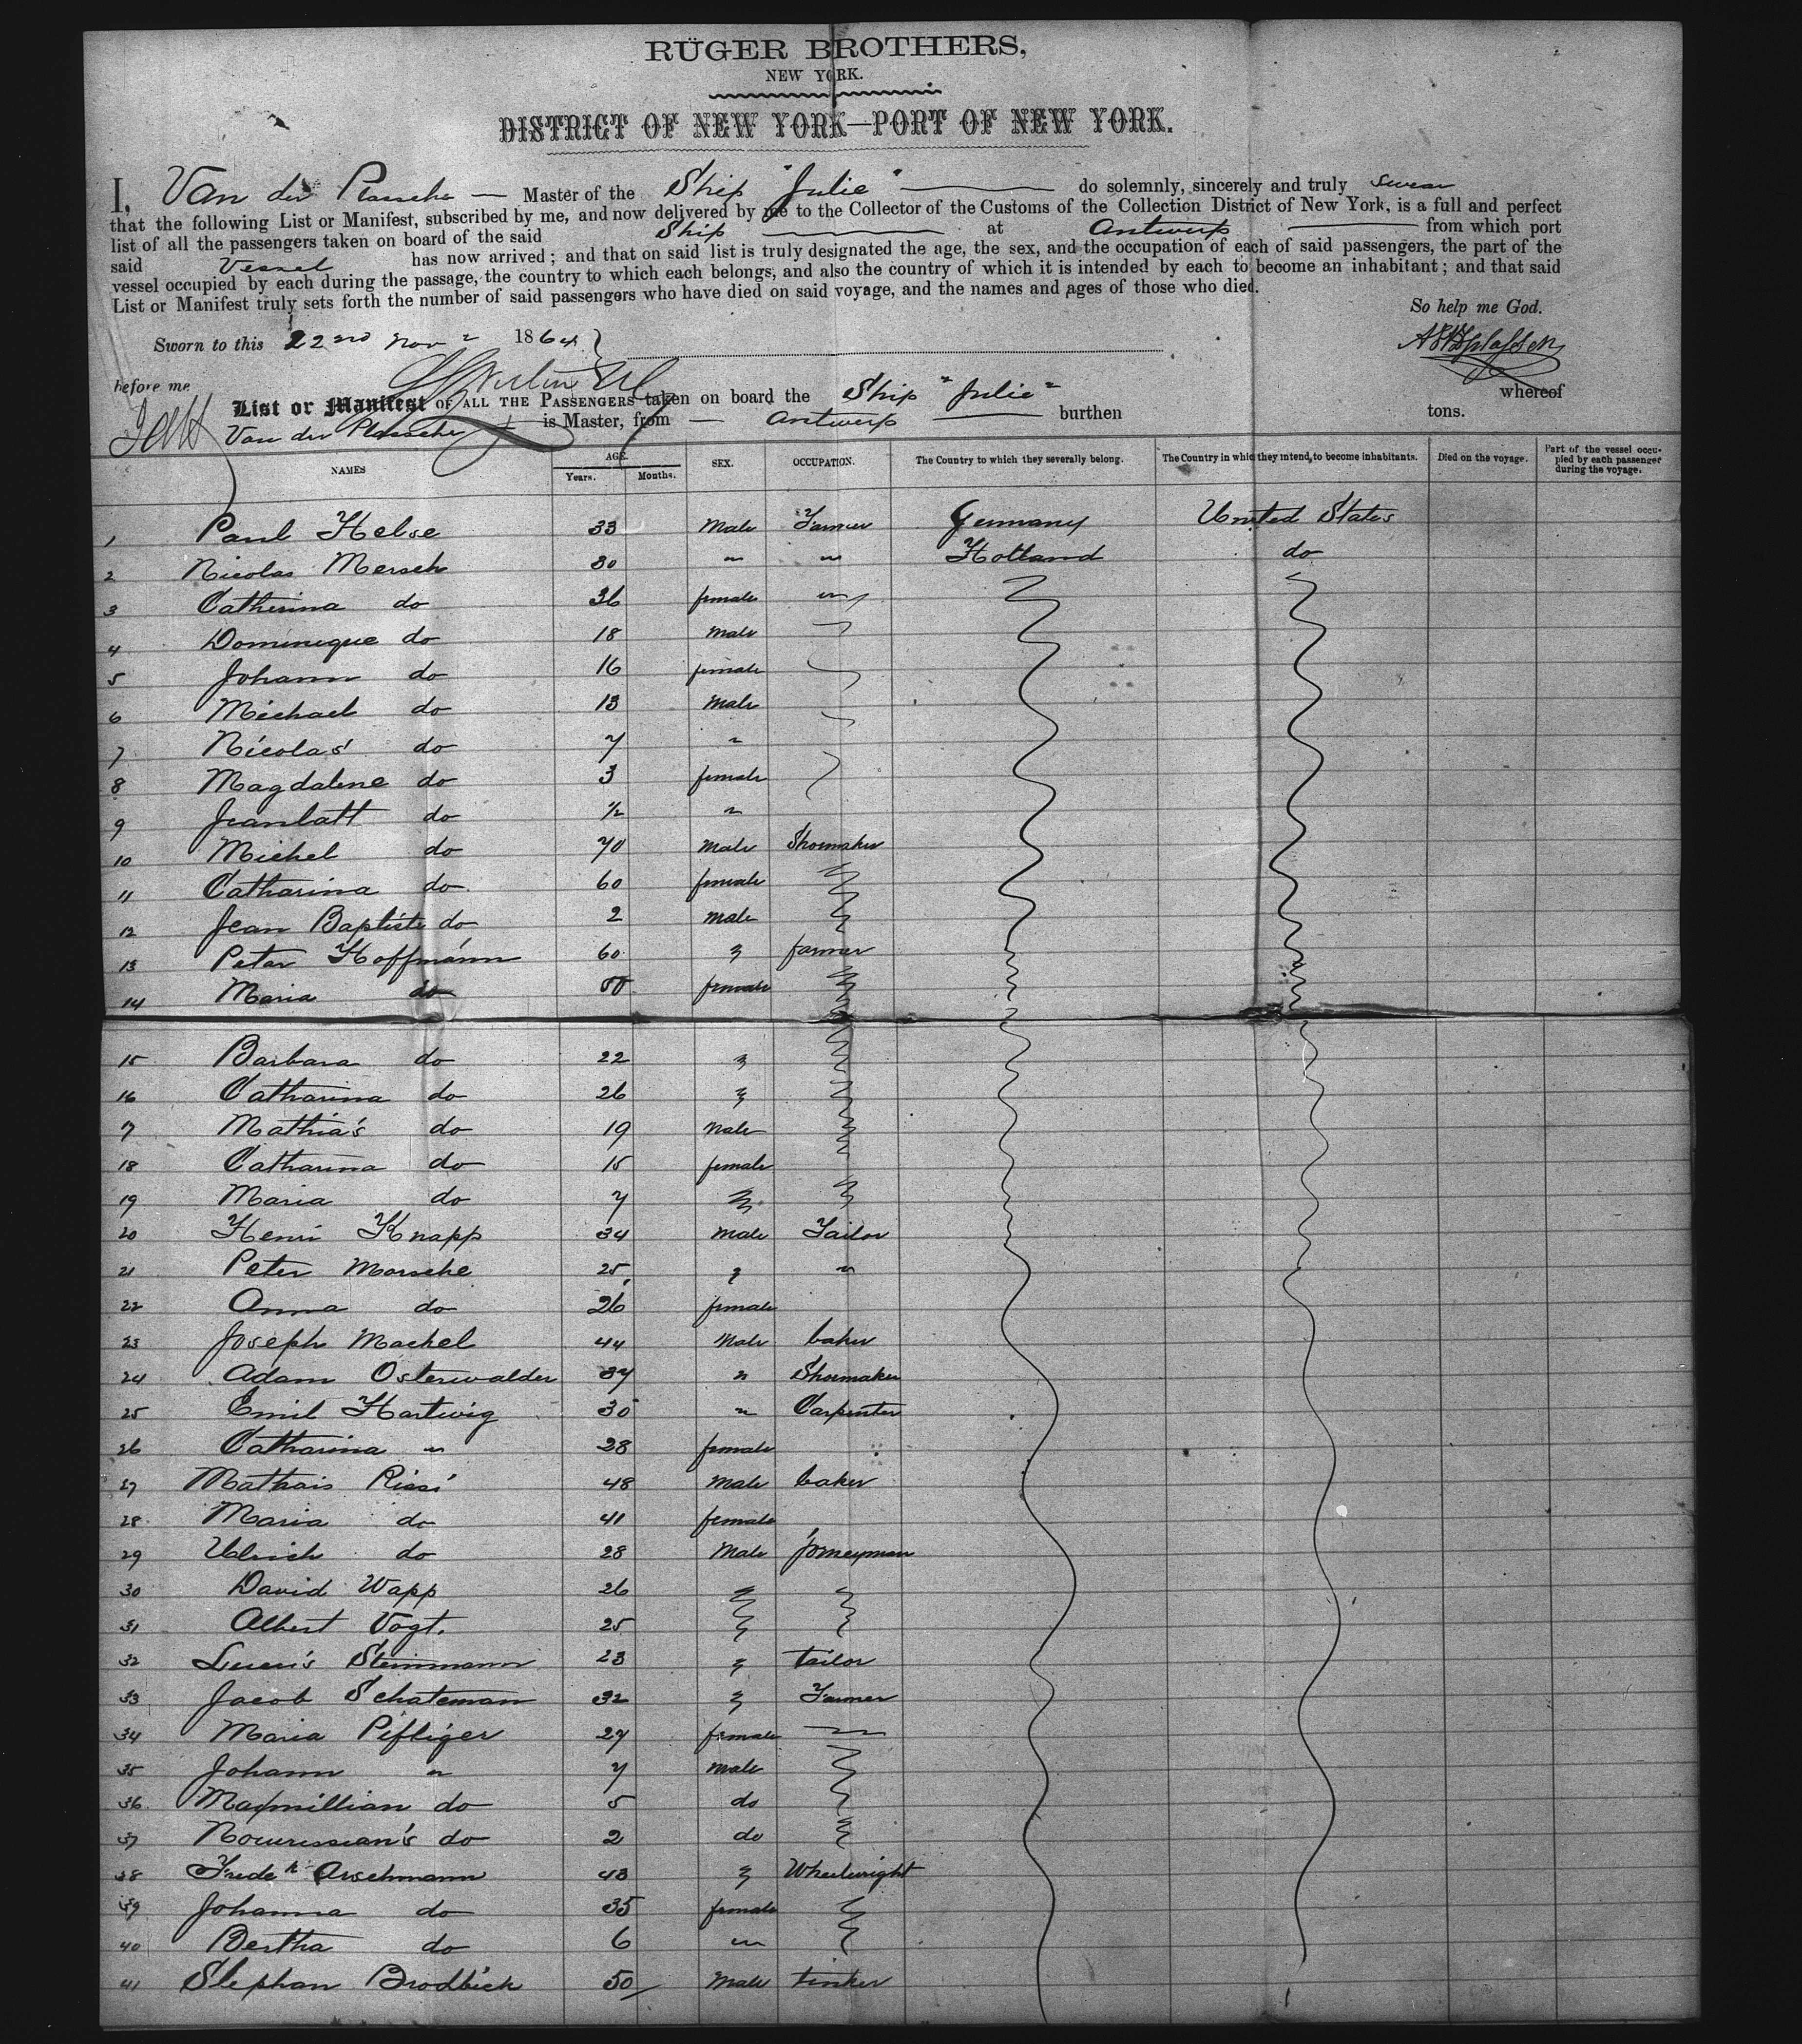 RÜGER BROTHERS,
NEW YORK.
DISTRICT OF NEW YORK—PORT OF NEW YORK.
I, Van der Plassche — Master of the Ship "Julie" do solemnly, sincerely and truly swear
that the following List or Manifest, subscribed by me, and now delivered by me to the Collector of the Customs of the Collection District of New York, is a full and perfect
list of all the passengers taken on board of the said Ship at Antwerp from which port
said Vessel has now arrived; and that on said list is truly designated the age, the sex, and the occupation of each of said passengers, the part of the
vessel occupied by each during the passage, the country to which each belongs, and also the country of which it is intended by each to become an inhabitant; and that said
List or Manifest truly sets forth the number of said passengers who have died on said voyage, and the names and ages of those who died.
So help me God.
Sworn to this 22nd Nov 1864
before me
List or Manifest OF ALL THE PASSENGERS taken on board the Ship "Julie" whereof
Van der Plassche is Master, from — Antwerp burthen tons.
NAMES AGE. Years. Months. SEX. OCCUPATION. The Country to which they severally belong. The Country in which they intend to become inhabitants. Died on the voyage. Part of the vessel occupied by each passenger during the voyage.
1 Paul Helse 33 Male Farmer Germany United States
2 Nicolas Mersch 30 " " Holland do
3 Catherina do 36 female "
4 Dominique do 18 male
5 Johann do 16 female
6 Michael do 13 male
7 Nicolas do 7 "
8 Magdalene do 3 female
9 do ½ "
10 Michel do 70 male Shoemaker
11 Catharina do 60 female
12 Jean Baptiste do 2 male
13 Peter Hoffmann 60 " farmer
14 Maria do female
15 Barbara do 22 "
16 Catharina do 26 "
7 Mathias do 19 Male
18 Catharina do 15 female
19 Maria do 7 "
20 Henri Knapp 34 Male Tailor
21 Peter Morsche 25 " "
22 Anna do 26 female
23 Joseph Machel 44 Male baker
24 Adam Osterwalder 37 " Shoemaker
25 Emil Hartwig 30 " Carpenter
26 Catharina " 28 female
27 Mathais Rissi 48 Male baker
28 Maria do 41 female
29 Ulrich do 28 Male jorneyman
30 David Wapp 26 " "
31 Albert Vogt. 25 " "
32 Steinmann 23 " tailor
33 Jacob Schateman 32 " Farmer
34 Maria Pifliger 27 female
35 Johann " 7 male
36 Maxmillian do 5 do
37 do 2 do
38 Fredek Arschmann 43 " Wheelwright
39 Johanna do 35 female
40 Bertha do 6 "
41 Stephan Brodbick 50 Male tinker